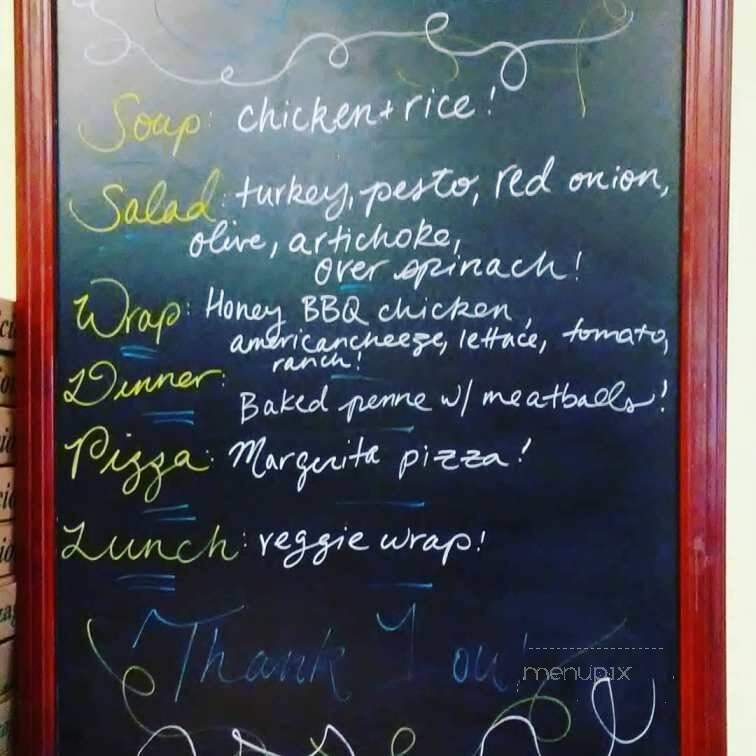 Soup: chicken + rice!
Salad: turkey, pesto, red onion,
olive, artichoke,
over spinach!
Wrap: Honey BBQ chicken,
americancheeze, lettuce, tomato,
ranch!
Dinner:
Baked penne w/ meatballs!
Pizza: Margerita pizza!
Lunch: veggie wrap!
Thank You!
menupix